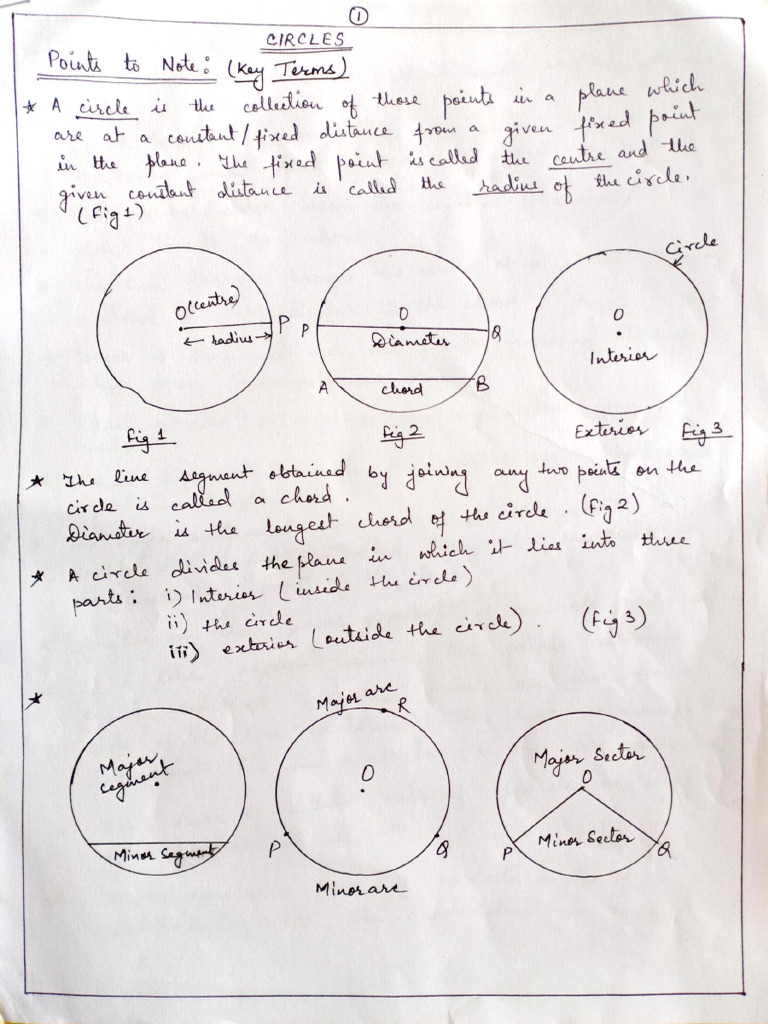 ①
CIRCLES
Points to Note: (Key Terms)
* A circle is the collection of those points in a plane which
are at a constant/fixed distance from a given fixed point
in the plane. The fixed point is called the centre and the
given constant distance is called the radius of the circle.
(Fig 1)
O (centre)
P
← radius →
Fig 1
O
P
Q
Diameter
A
chord
B
Fig 2
Circle
O
Interior
Exterior
Fig 3
* The line segment obtained by joinng any two points on the
circle is called a chord.
Diameter is the longest chord of the circle. (Fig 2)
* A circle divides the plane in which it lies into three
parts: i) Interior (inside the circle)
ii) the circle
iii) exterior (outside the circle). (Fig 3)
*
Major
segment
Minor Segment
Major arc
R
O
P
Q
Minor arc
Major Sector
O
Minor Sector
P
Q